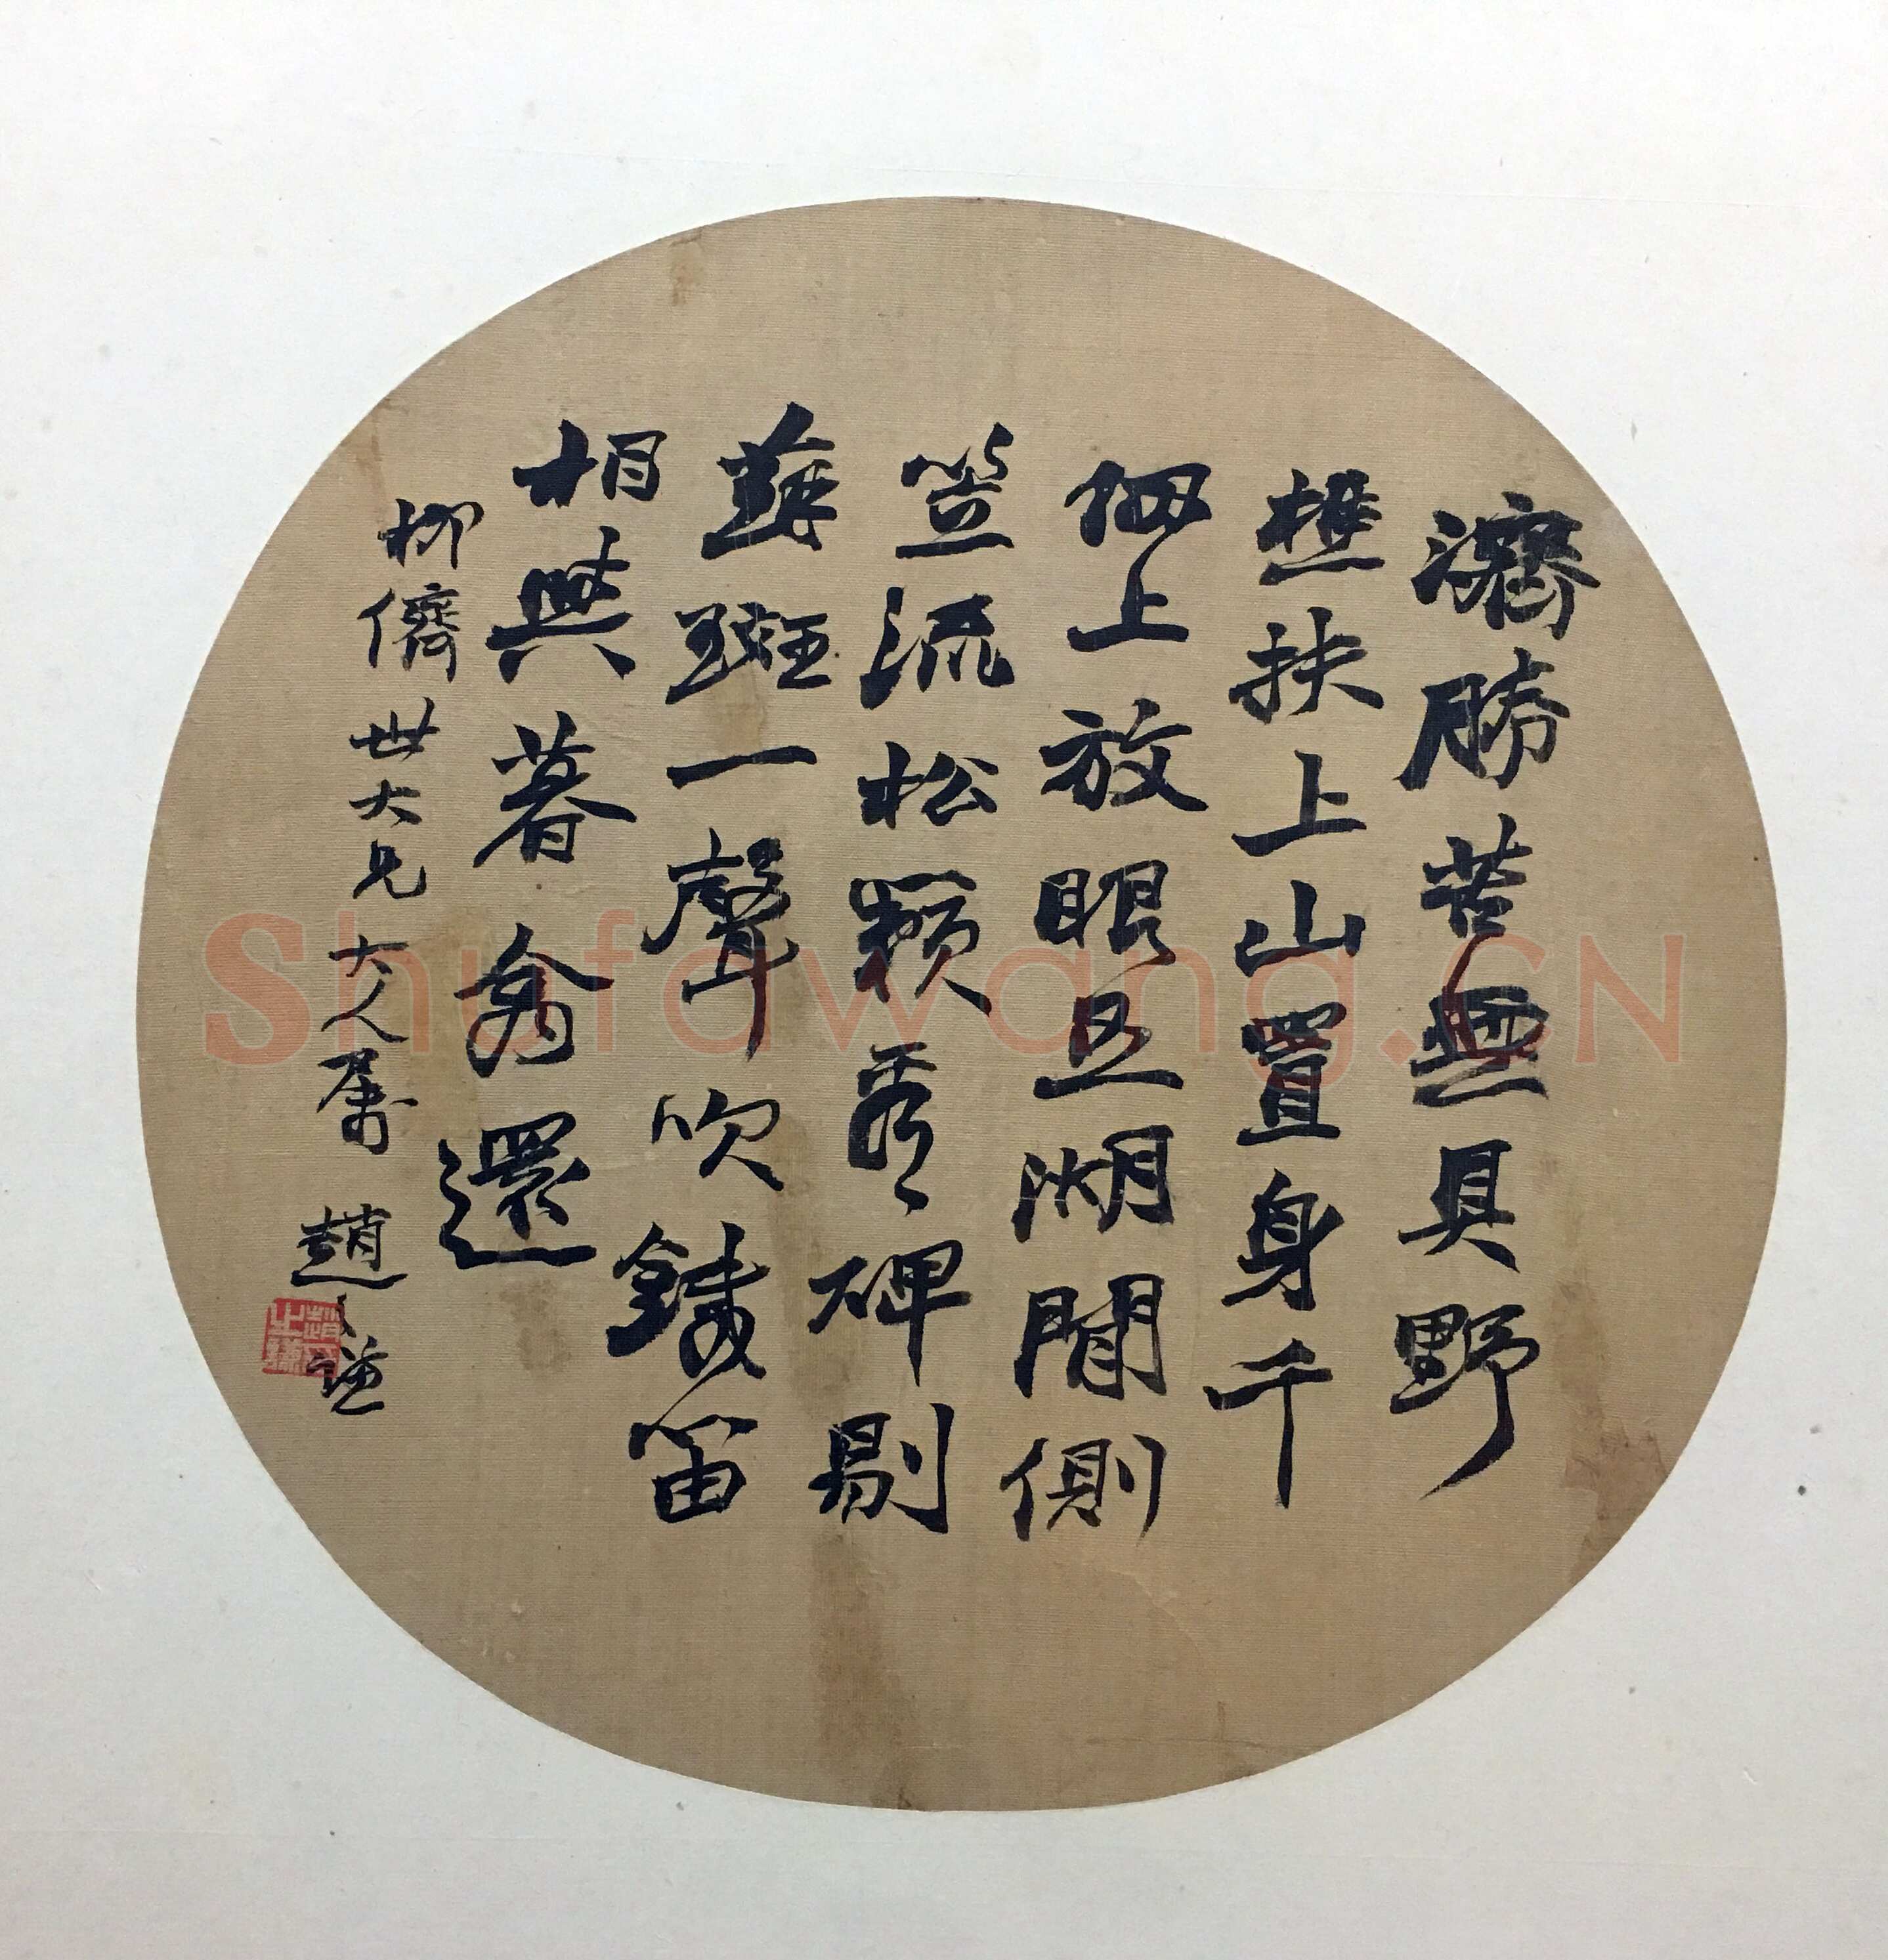 濟勝苦無具野
樵扶上山置身千
上放眼五湖間側
笠流松碑剔
蘚斑一聲吹鐵笛
相與暮禽還
柳儕世大兄大人屬 趙之謙
Shufawang.CN